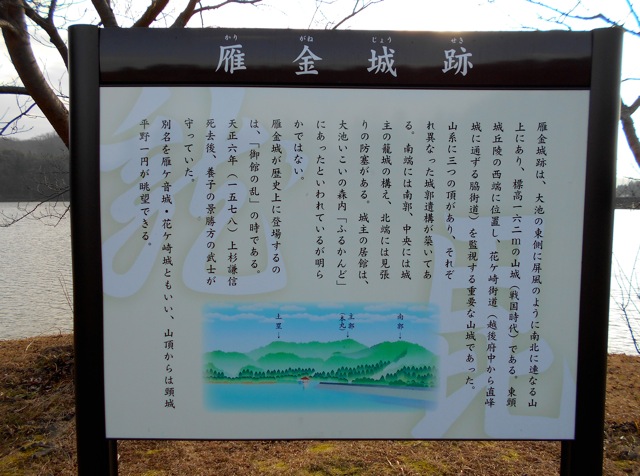 かり がね じょう せき
雁金城跡
雁金城跡は、大池の東側に屏風のように南北に連なる山
上にあり、標高一六二mの山城（戦国時代）である。東頸
城丘陵の西端に位置し、花ケ崎街道（越後府中から直峰
城に通ずる脇街道）を監視する重要な山城であった。
山系に三つの頂があり、それぞ
れ異なった城郭遺構が築いてあ
る。南端には南郭、中央には城
主の籠城の構え、北端には見張
りの防塞がある。城主の居館は、
大池いこいの森内「ふるかんど」
にあったといわれているが明ら
かではない。
雁金城が歴史上に登場するの
は、「御館の乱」の時である。
天正六年（一五七八）上杉謙信
死去後、養子の景勝方の武士が
守っていた。
別名を雁ケ音城・花ケ崎城ともいい、山頂からは頸城
平野一円が眺望できる。
南郭
主郭
（本丸）
土塁